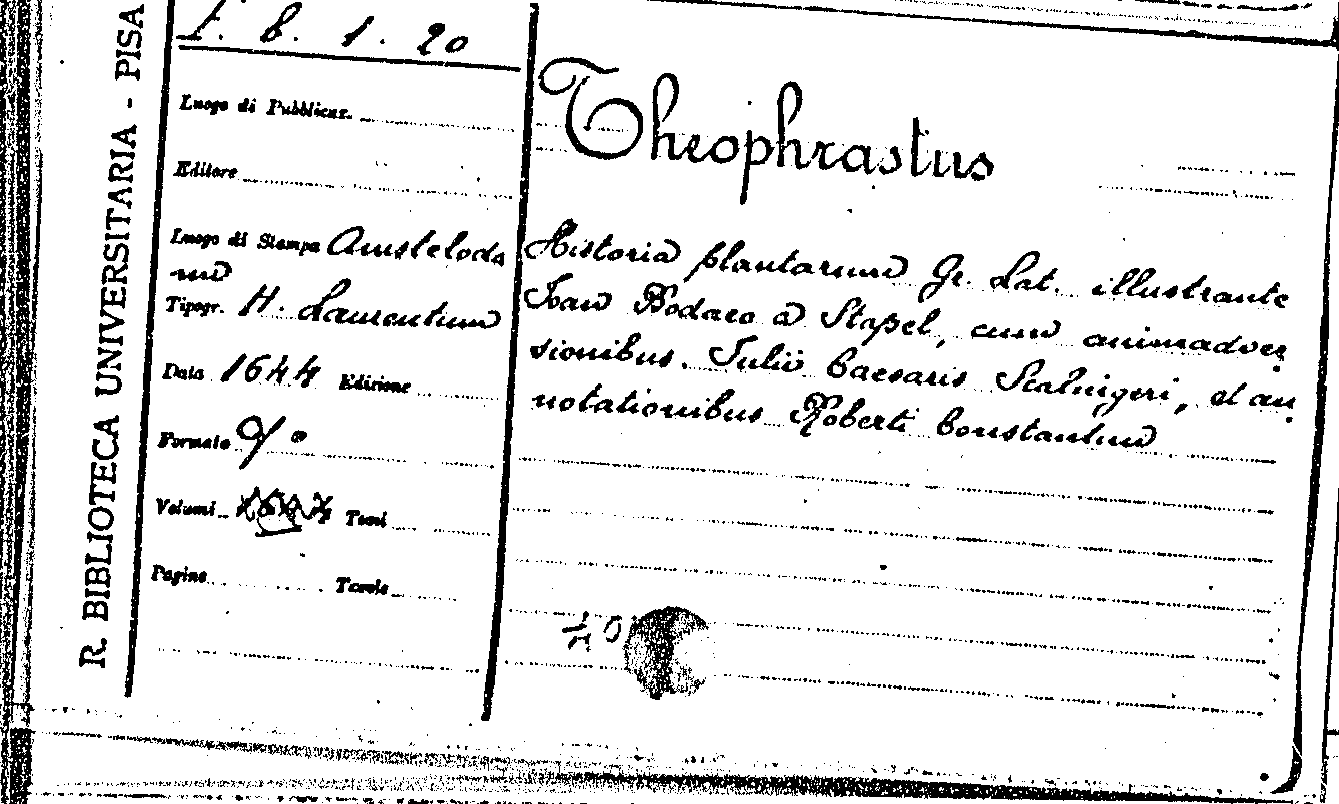 R. BIBLIOTECA UNIVERSITARIA - PISA
F. 8. 1. 20
Luogo di Pubblicaz.
Editore
Luogo di Stampa Amsteloda
mi
Tipogr. H. Laurentium
Data 1644 Edizione
Formato
Volumi Tomi
Pagine Tavole
Theophrastus
Historia plantarum Gr. Lat. illustrante
Joan Bodaeo a Stapel, cum animadver
sionibus. Julii Caesaris Scaligeri, et an
notationibus Roberti Constantini